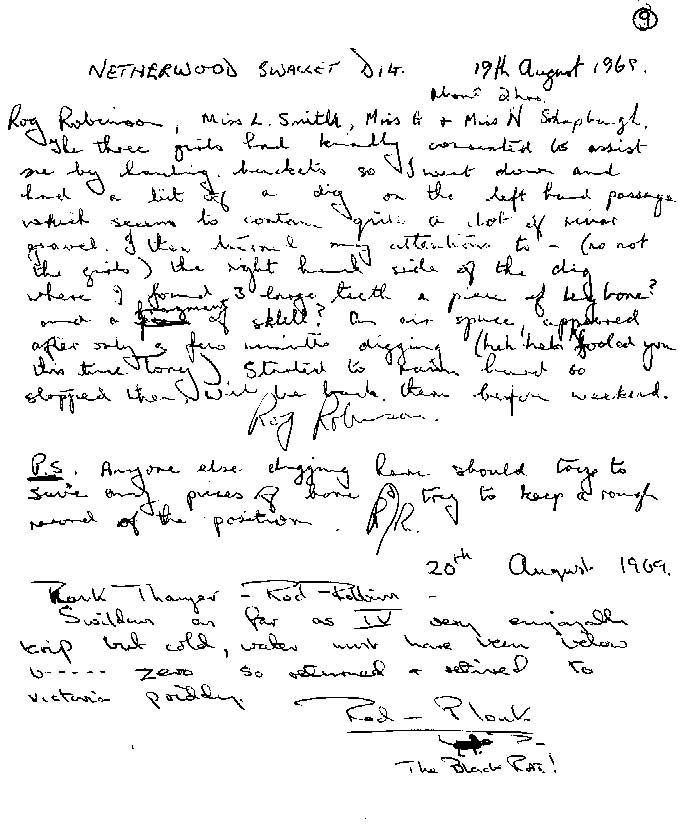 9
NETHERWOOD SWALLET DIG. 19th August 1969.
About 2 hrs.
Rog Robinson, Miss L. Smith, Miss & Miss N
The three girls had kindly consented to assist
me by hauling buckets so I went down and
had a bit of a dig on the left hand passage
which seems to contain quite a lot of
gravel. I then turned my attentions to - (no not
the girls) the right hand side of the dig
where I found 3 large teeth a piece of leg bone?
and a fragment of skull? An air space appeared
after only a few minutes digging (heh heh fooled you
this time Tony) Started to rain hard so
stopped then, will be back there before weekend.
Rog Robinson.
P.S. Anyone else digging here should try to
save any pieces of bone & try to keep a rough
record of the position. R/R.
20th August 1969.
Thanger - Rod -
Swildons as far as IV very enjoyable
trip but cold, water must have been below
b----- zero so returned & retired to
victoria
Rod - Plonk
The Black Rat!